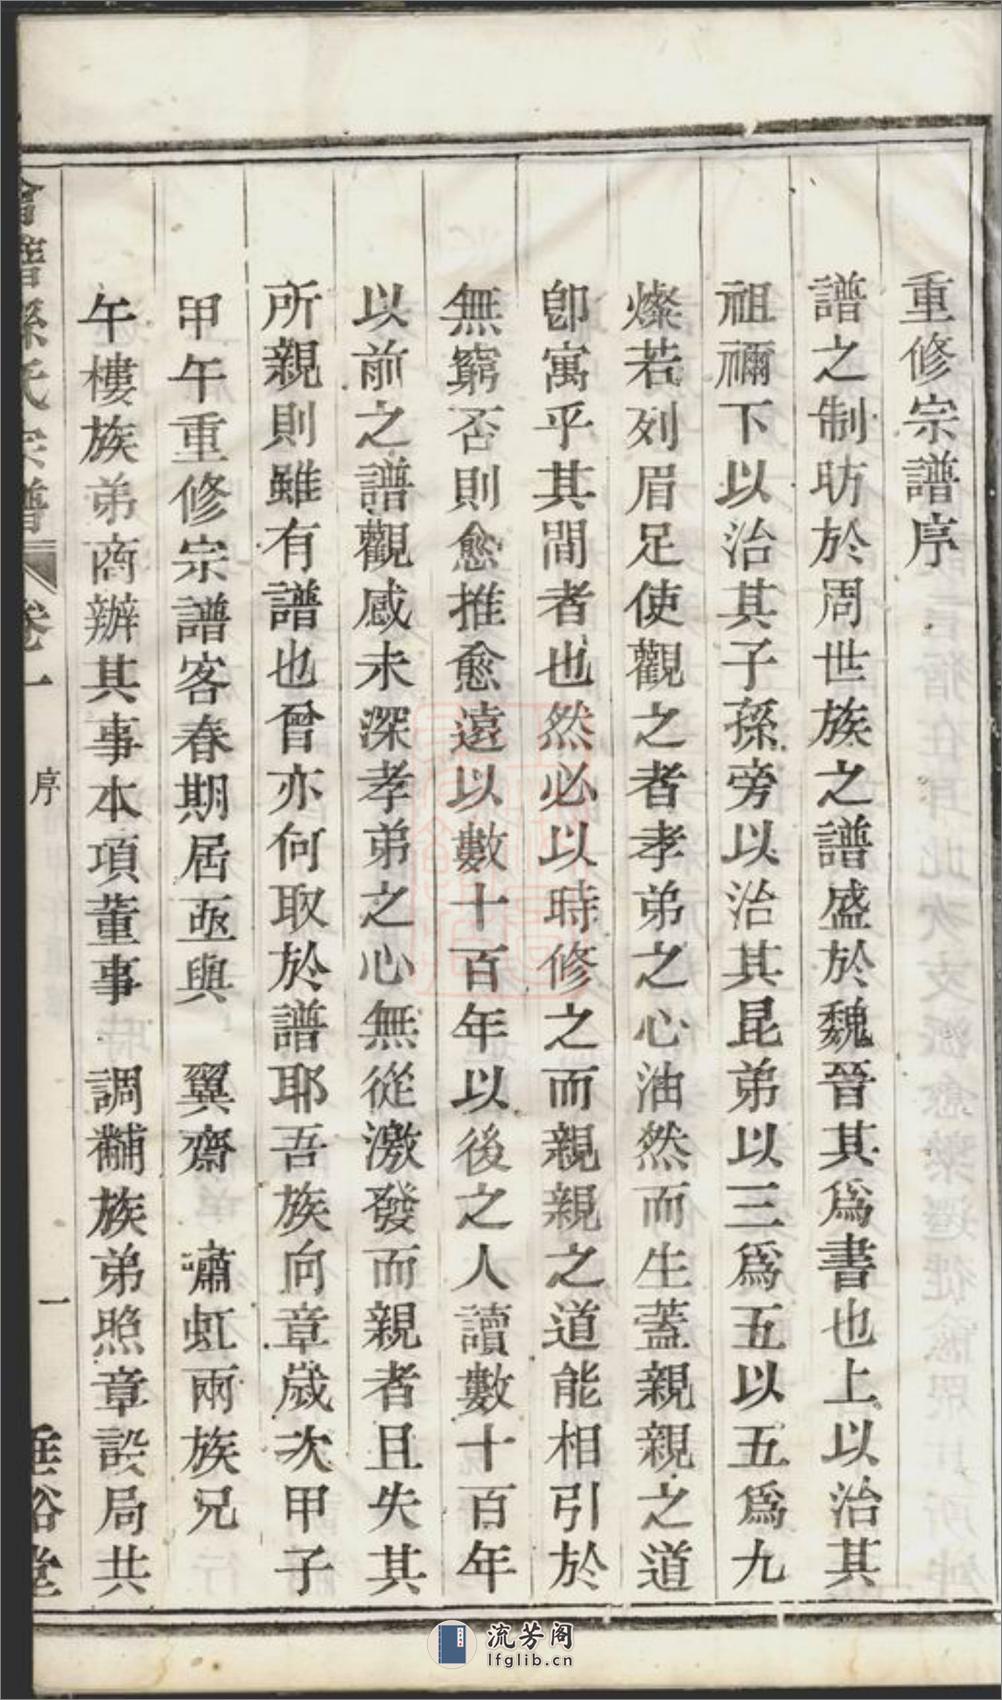 重修宗譜序
譜之制昉於周世族之譜盛於魏晉其爲書也上以治其
祖禰下以治其子孫旁以治其昆弟以三爲五以五爲九
燦若列眉足使觀之者孝弟之心油然而生蓋親親之道
卽寓乎其間者也然必以時修之而親親之道能相引於
無窮否則愈推愈遠以數十百年以後之人讀數十百年
以前之譜觀感未深孝弟之心無從激發而親者且失其
所親則雖有譜也曾亦何取於譜耶吾族向章歲次甲子
甲午重修宗譜客春期居亟與 翼齋 瀟虹兩族兄
午樓族弟商辦其事本項董事 調黼族弟照章設局共
會稽孫氏宗譜 卷一 序 一 垂裕堂
流芳阁
lfglib.cn